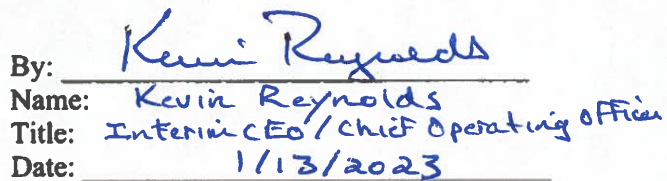 By: Kevin Reynolds
Name: Kevin Reynolds
Title: Interim CEO / Chief Operating Officer
Date: 1/13/2023